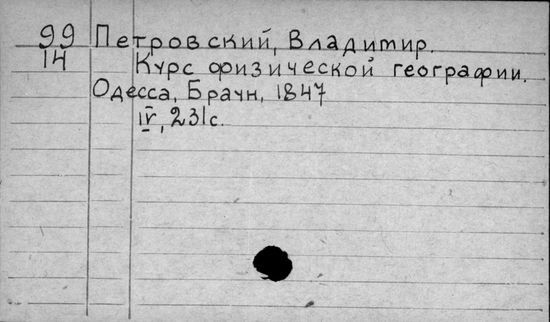 99 Петровский, Владимир.
14 Курс физической географии.
Одесса, Браун, 1847
IV, 231с.